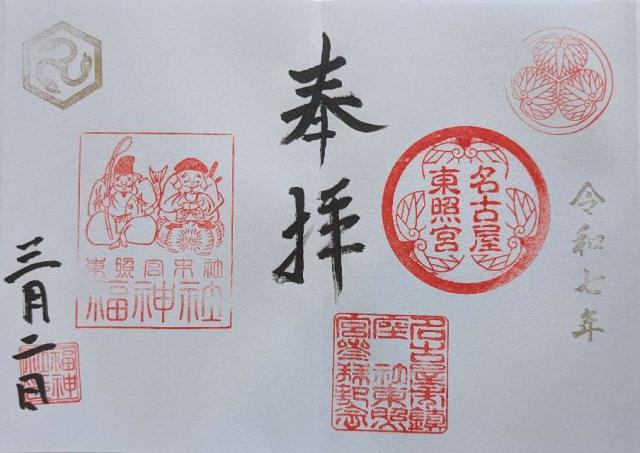 令和七年
名古屋
東照宮
奉拝
名古屋市鎮
座 社東照
宮参拝記念
東照宮末社
福神社
三月二日
福神